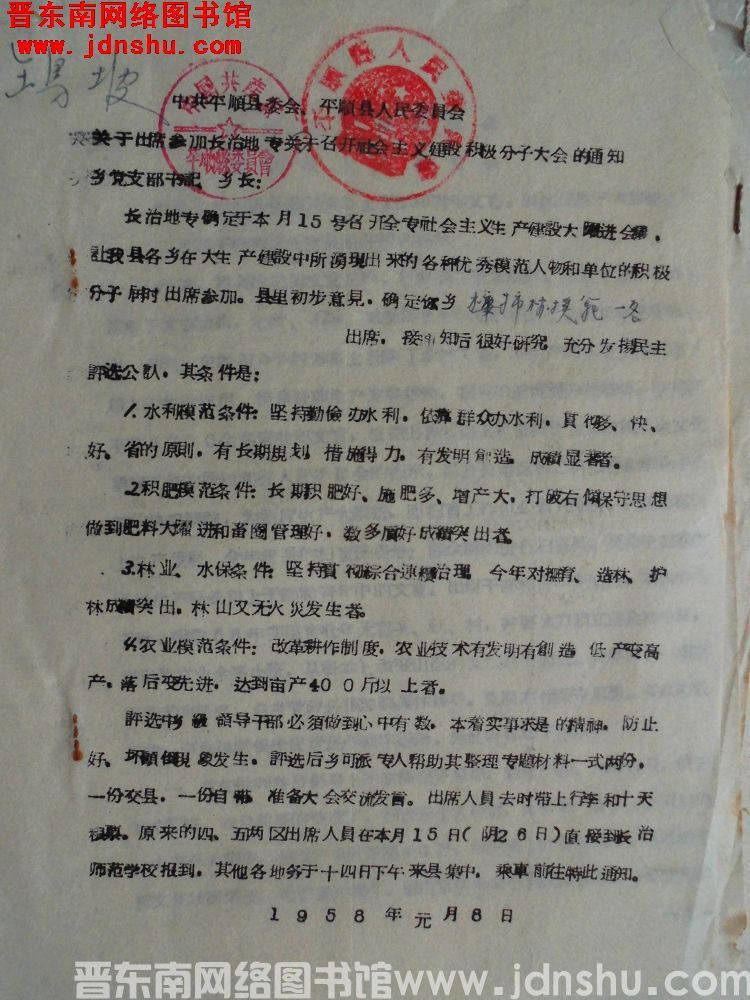 晋东南网络图书馆
www.jdnshu.com
中国共产党
平顺县委员会
中共平順县委会、平順县人民委員会
关于出席参加长治地专关于召开社会主义建設积极分子大会的通知
乡党支部书記 乡长:
长治地专确定于本月15号召开全专社会主义生产建設大躍进会議,
訨我县各乡在大生产建設中所湧現出来的各种优秀模范人物和单位的积极
分子届时出席参加。县里初步意見,确定你乡 模范一名
出席,接通知后很好研究 充分发揚民主
評选公訨,其条件是:
1.水利模范条件:坚持勤儉办水利,依靠群众办水利,貫彻多、快、
好、省的原則,有长期規划 措施得力,有发明創造,成績显著者。
2积肥模范条件:长期积肥好、施肥多、增产大,打破右傾保守思想
做到肥料大躍进和畜圈管理好,数多質好成績突出者。
3.林业、水保条件:坚持貫彻綜合連續治理,今年对撫育、造林、护
林成績突出,林山又无火災发生者。
4.农业模范条件:改革耕作制度,农业技术有发明有創造 低产变高
产,落后变先进,达到亩产400斤以上者。
評选中乡級領导干部必須做到心中有数,本着实事求是的精神,防止
好、坏顛倒現象发生,評选后乡可派专人帮助其整理专題材料一式两份,
一份交县,一份自帶,准备大会交流发言。出席人員去时带上行李和十天
粮票。原来的四、五两区出席人員在本月15日(阴26日)直接到长治
师范学校报到,其他各地务于十四日下午来县集中,乘車前往特此通知。
1958年元月8日
晋东南网络图书馆www.jdnshu.com